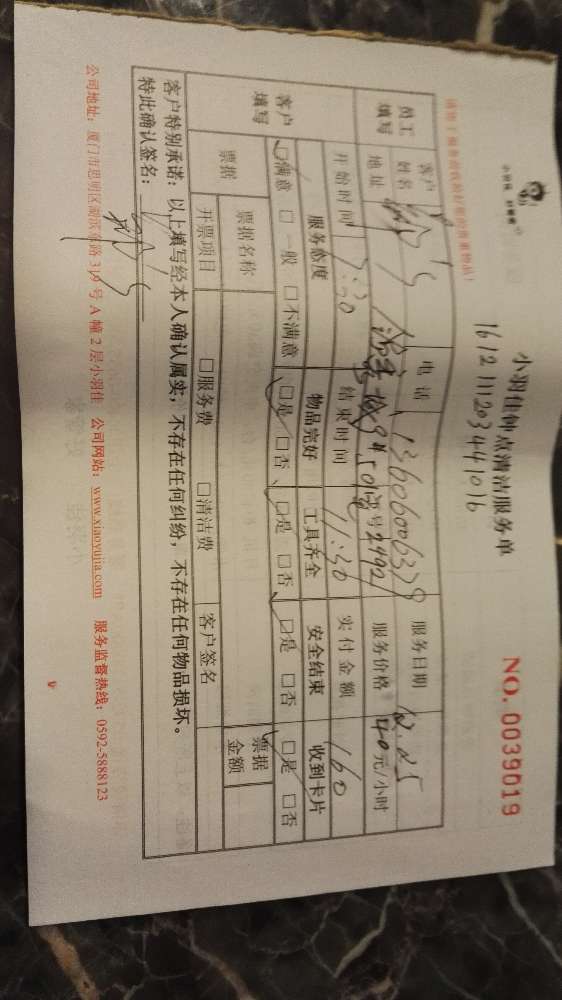 小羽佳钟点清洁服务单
NO. 0039019
161211120344 1016
请您！服务前收拾好您的贵重物品！
员工填写
客户姓名
电话 13606006378
服务日期 12.25
地址
9# 501
2492
服务价格 40元/小时
开始时间 7:30
结束时间 11:30
实付金额 160
客户填写
服务态度 物品完好 工具齐全 安全结束 收到卡片
☑满意 □一般 □不满意 ☑是 □否 ☑是 □否 ☑是 □否 ☑是 □否
票据 票据名称 票据金额
开票项目 □服务费 □清洁费 客户签名
客户特别承诺：以上填写经本人确认属实，不存在任何纠纷，不存在任何物品损坏。
特此确认签名：
公司地址：厦门市思明区湖滨东路319号A幢2层小羽佳 公司网站：www.xiaoyujia.com 服务监督热线：0592-5888123